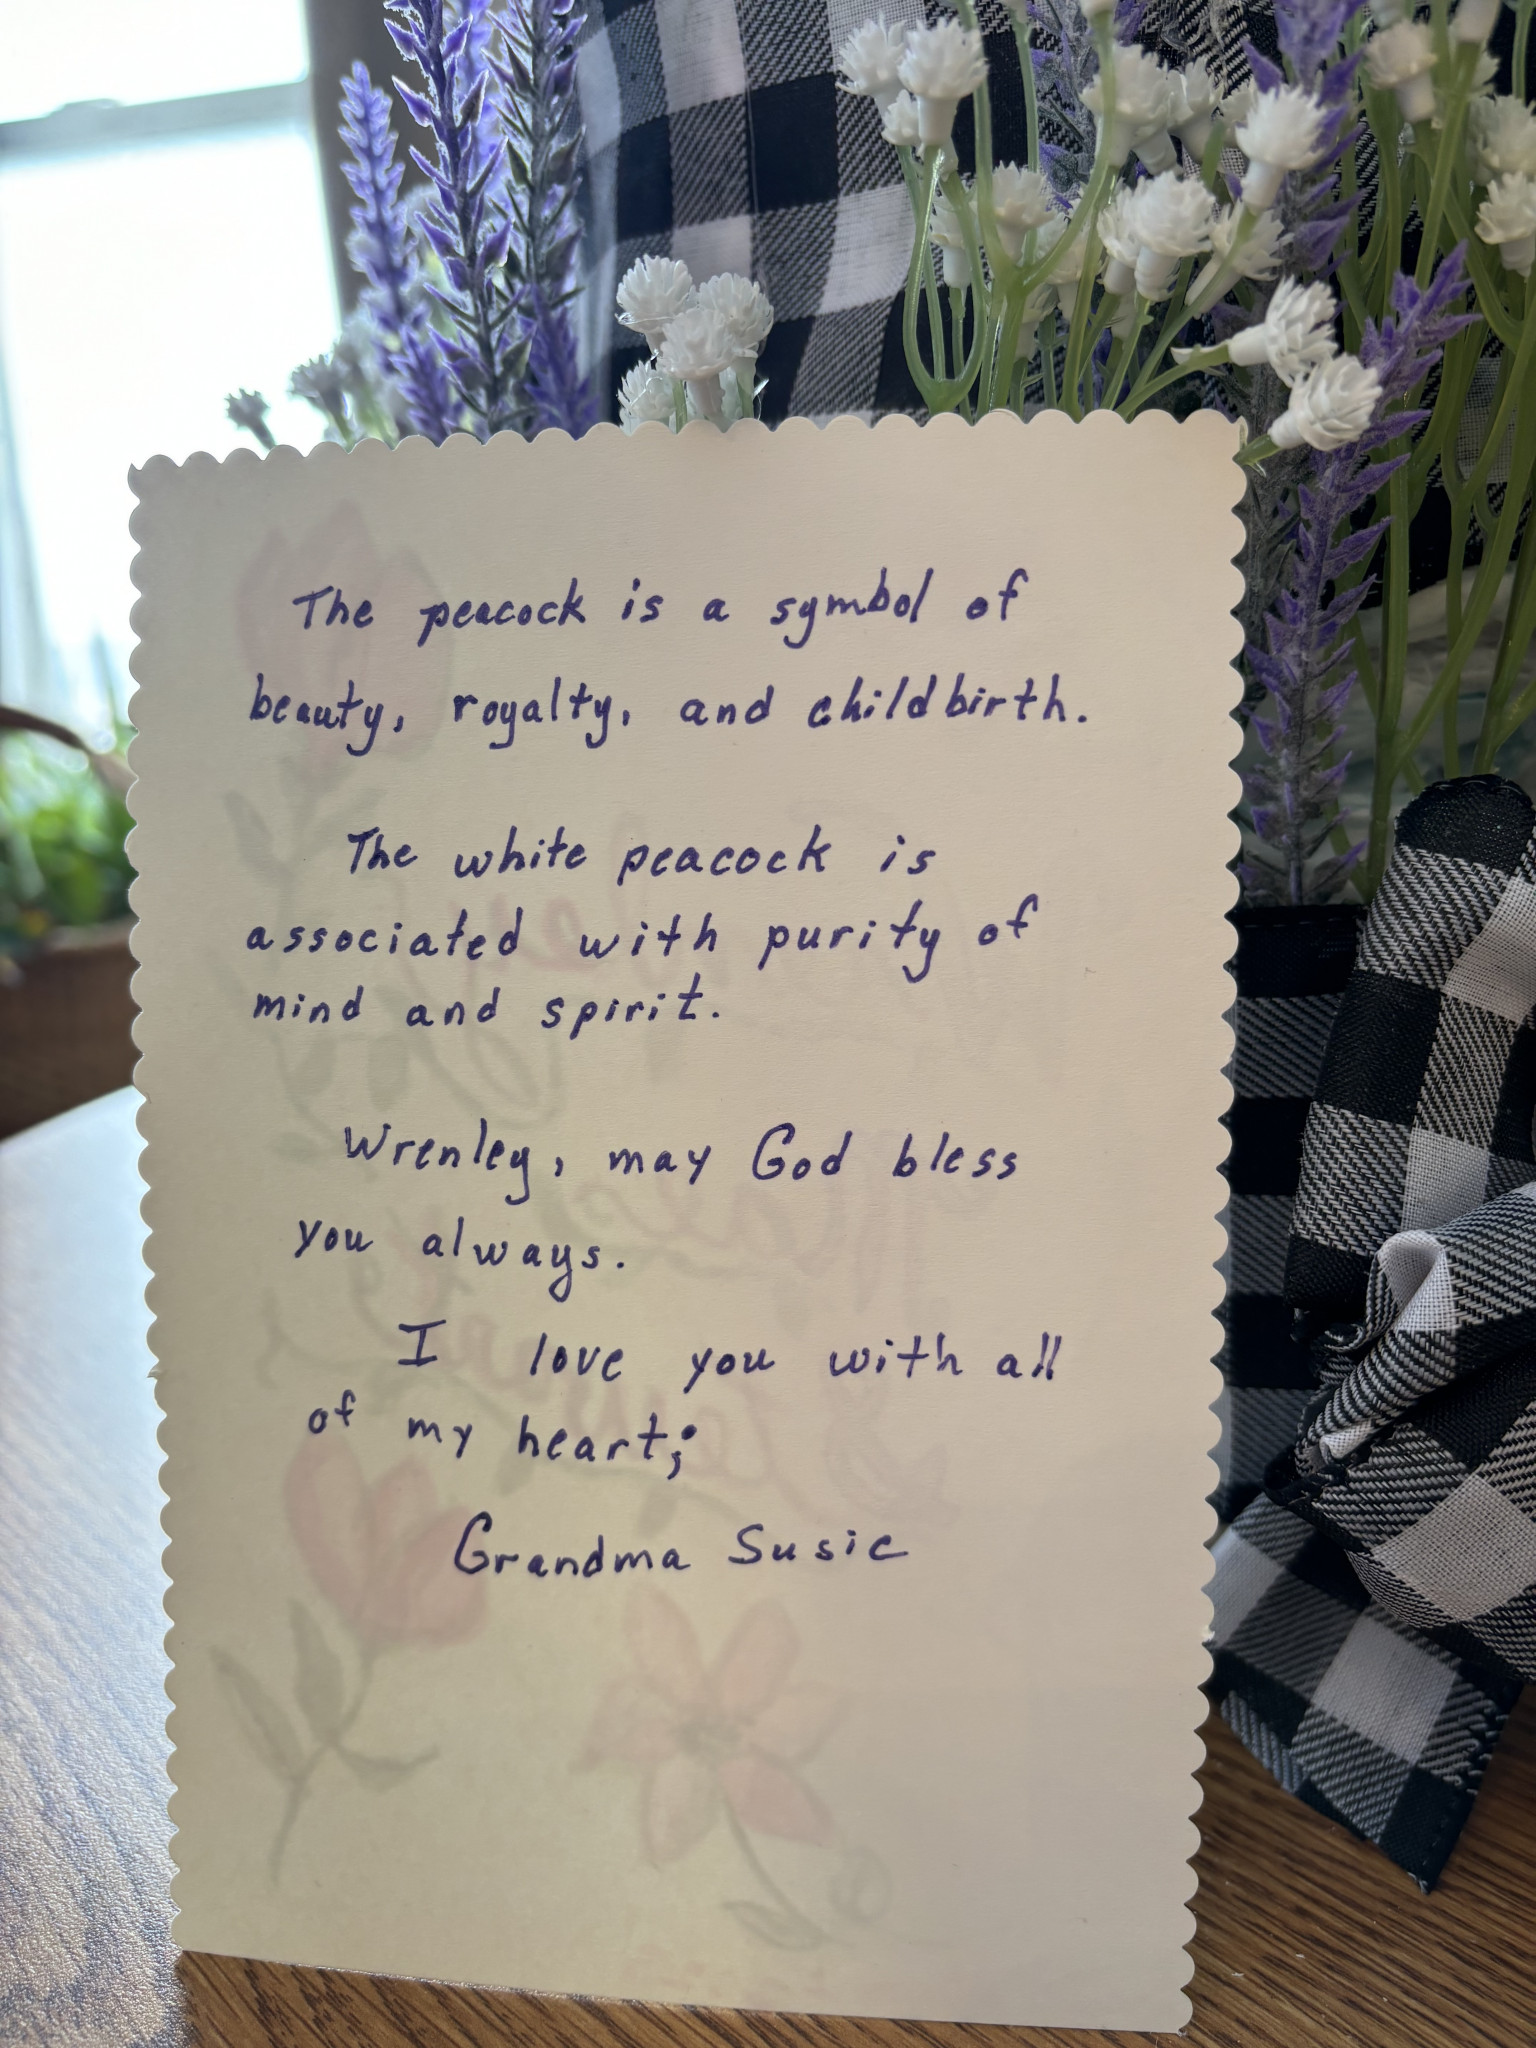 The peacock is a symbol of
beauty, royalty, and childbirth.
The white peacock is
associated with purity of
mind and spirit.
Wrenley, may God bless
you always.
I love you with all
of my heart;
Grandma Susie